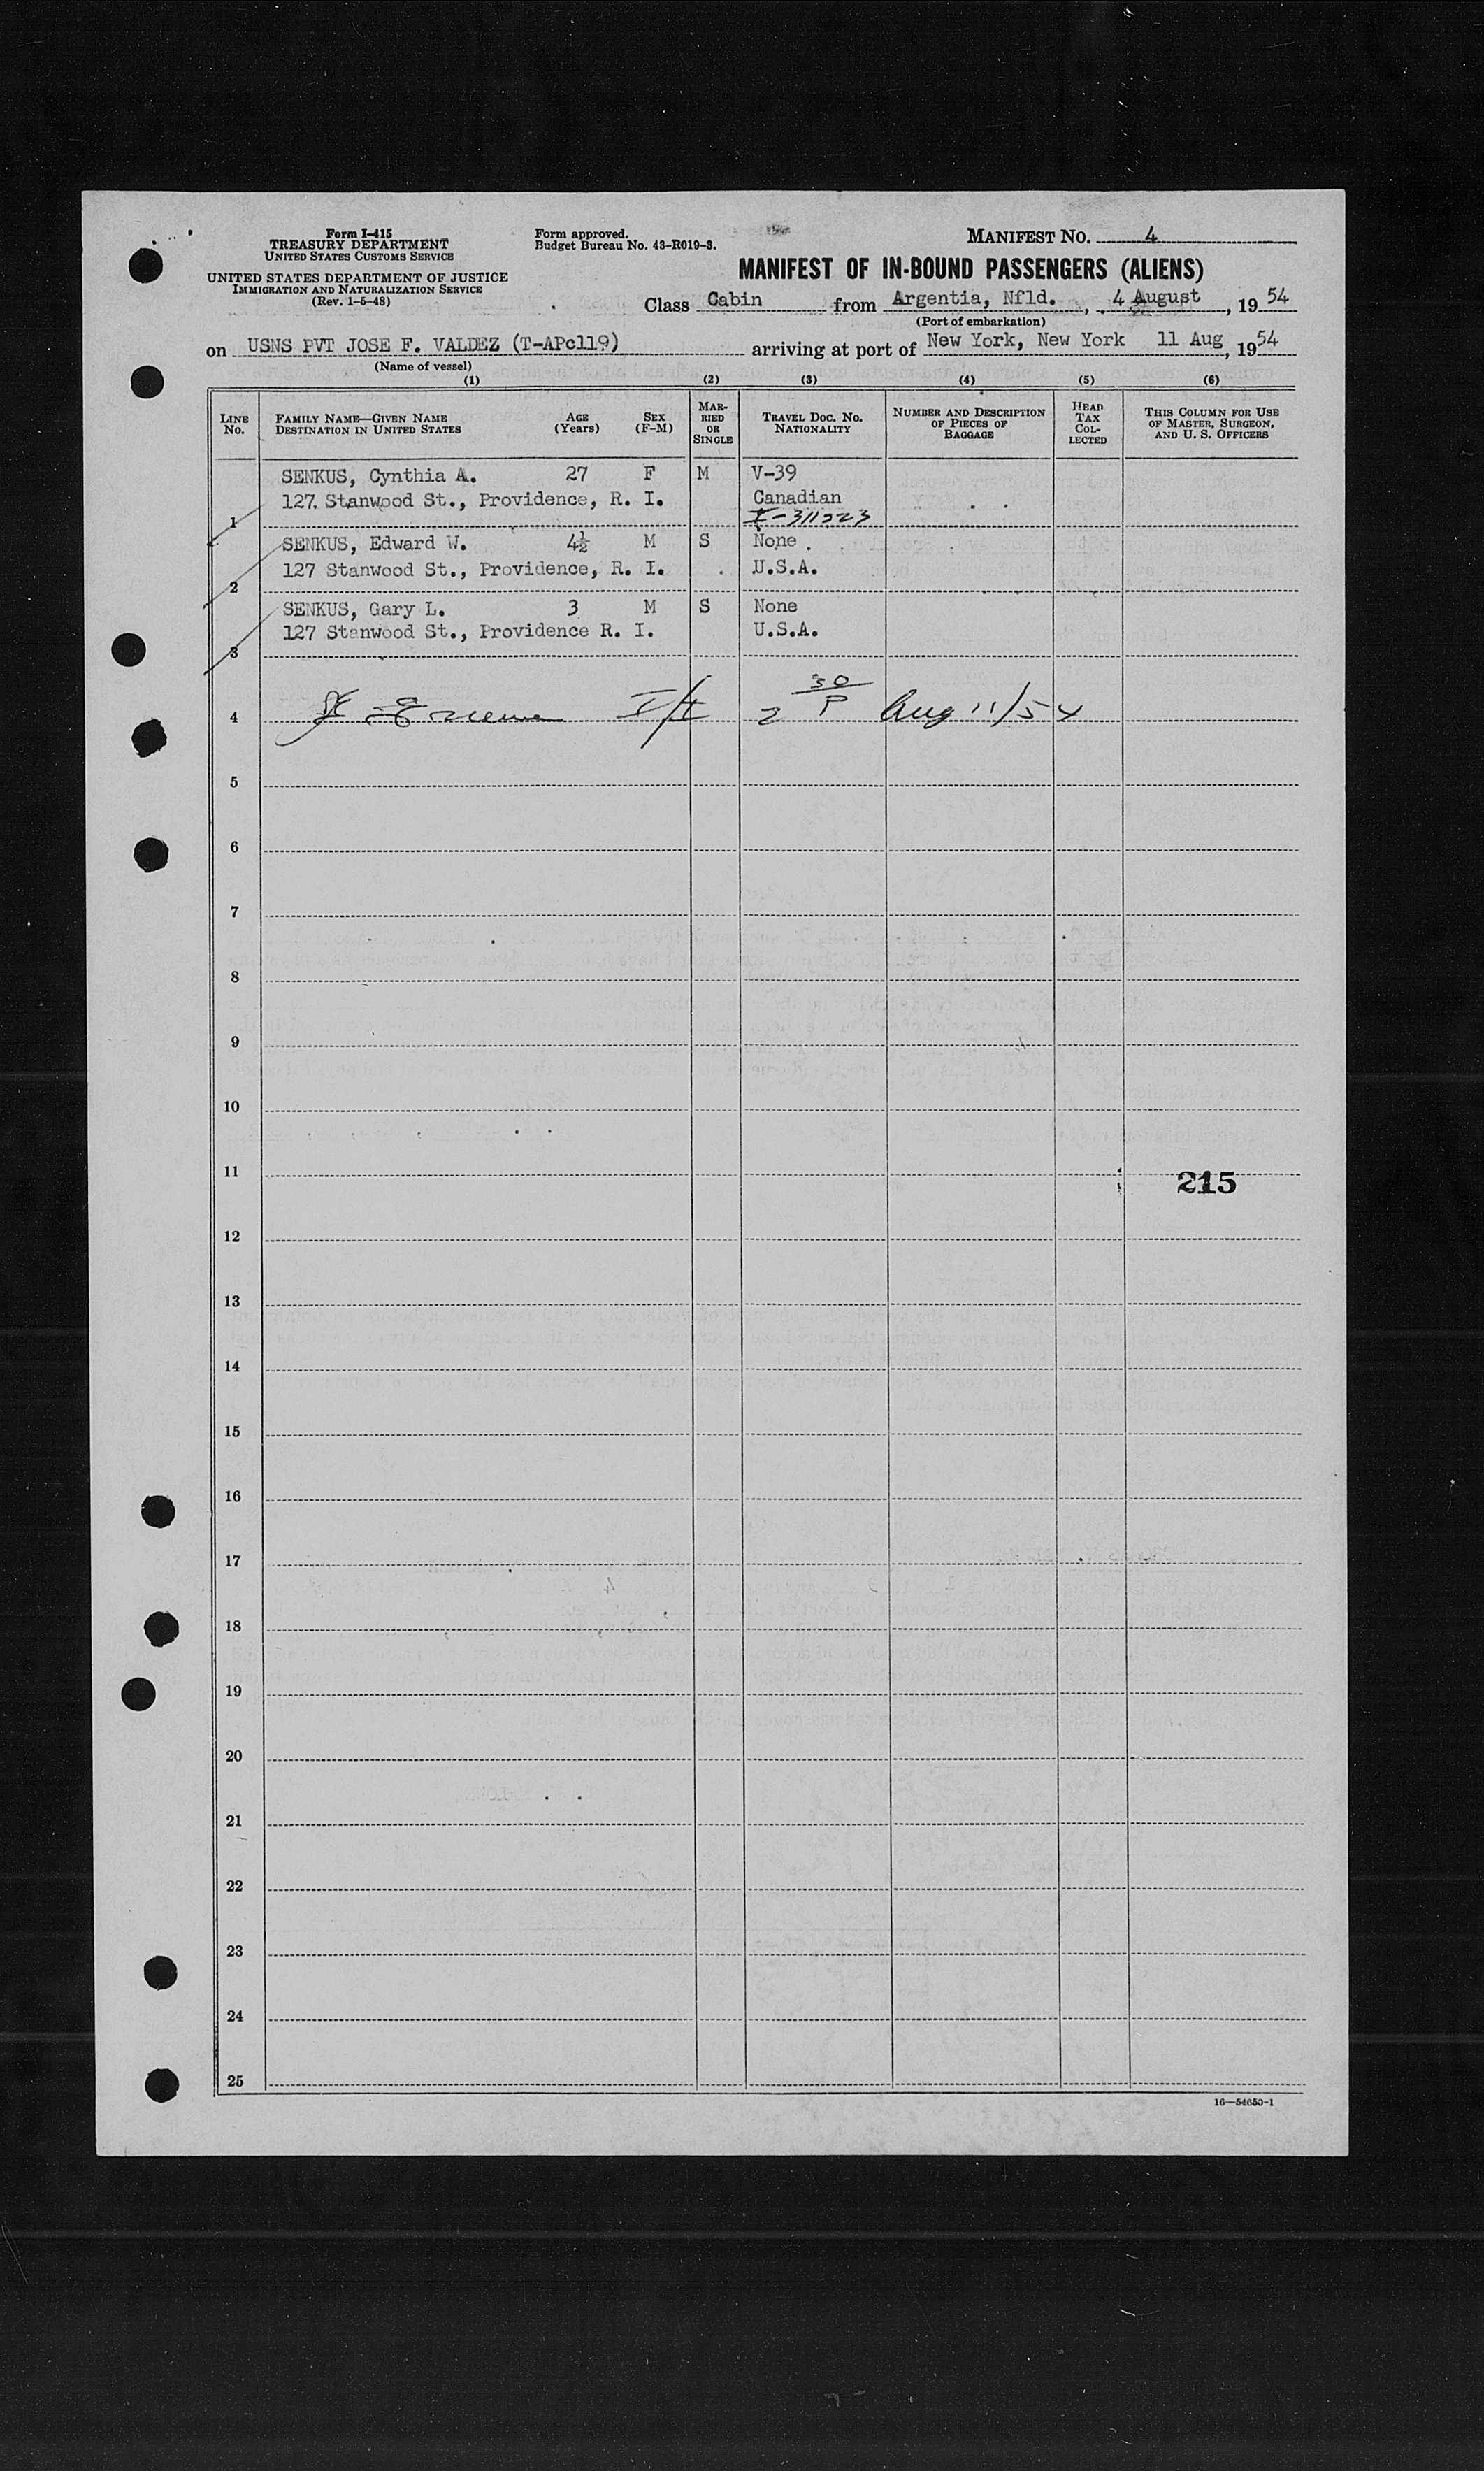 Form I-415
TREASURY DEPARTMENT
UNITED STATES CUSTOMS SERVICE
UNITED STATES DEPARTMENT OF JUSTICE
IMMIGRATION AND NATURALIZATION SERVICE
(Rev. 1-5-48)
Form approved.
Budget Bureau No. 43-R019-3.
MANIFEST NO. 4
MANIFEST OF IN-BOUND PASSENGERS (ALIENS)
Class Cabin from Argentia, Nfld., 4 August, 1954
(Port of embarkation)
on USNS PVT JOSE F. VALDEZ (T-APc119) arriving at port of New York, New York 11 Aug, 1954
(Name of vessel)
(1) (2) (3) (4) (5) (6)
LINE No. FAMILY NAME—GIVEN NAME DESTINATION IN UNITED STATES AGE (Years) SEX (F-M) MARRIED OR SINGLE TRAVEL DOC. NO. NATIONALITY NUMBER AND DESCRIPTION OF PIECES OF BAGGAGE HEAD TAX COLLECTED THIS COLUMN FOR USE OF MASTER, SURGEON, AND U. S. OFFICERS
SENKUS, Cynthia A. 27 F M V-39
127 Stanwood St., Providence, R. I. Canadian
1 I-311223
SENKUS, Edward W. 4½ M S None
127 Stanwood St., Providence, R. I. U.S.A.
2
SENKUS, Gary L. 3 M S None
127 Stanwood St., Providence R. I. U.S.A.
3
4 I/I 2 30/P Aug 11/54
5
6
7
8
9
10
11 215
12
13
14
15
16
17
18
19
20
21
22
23
24
25
16—54650-1